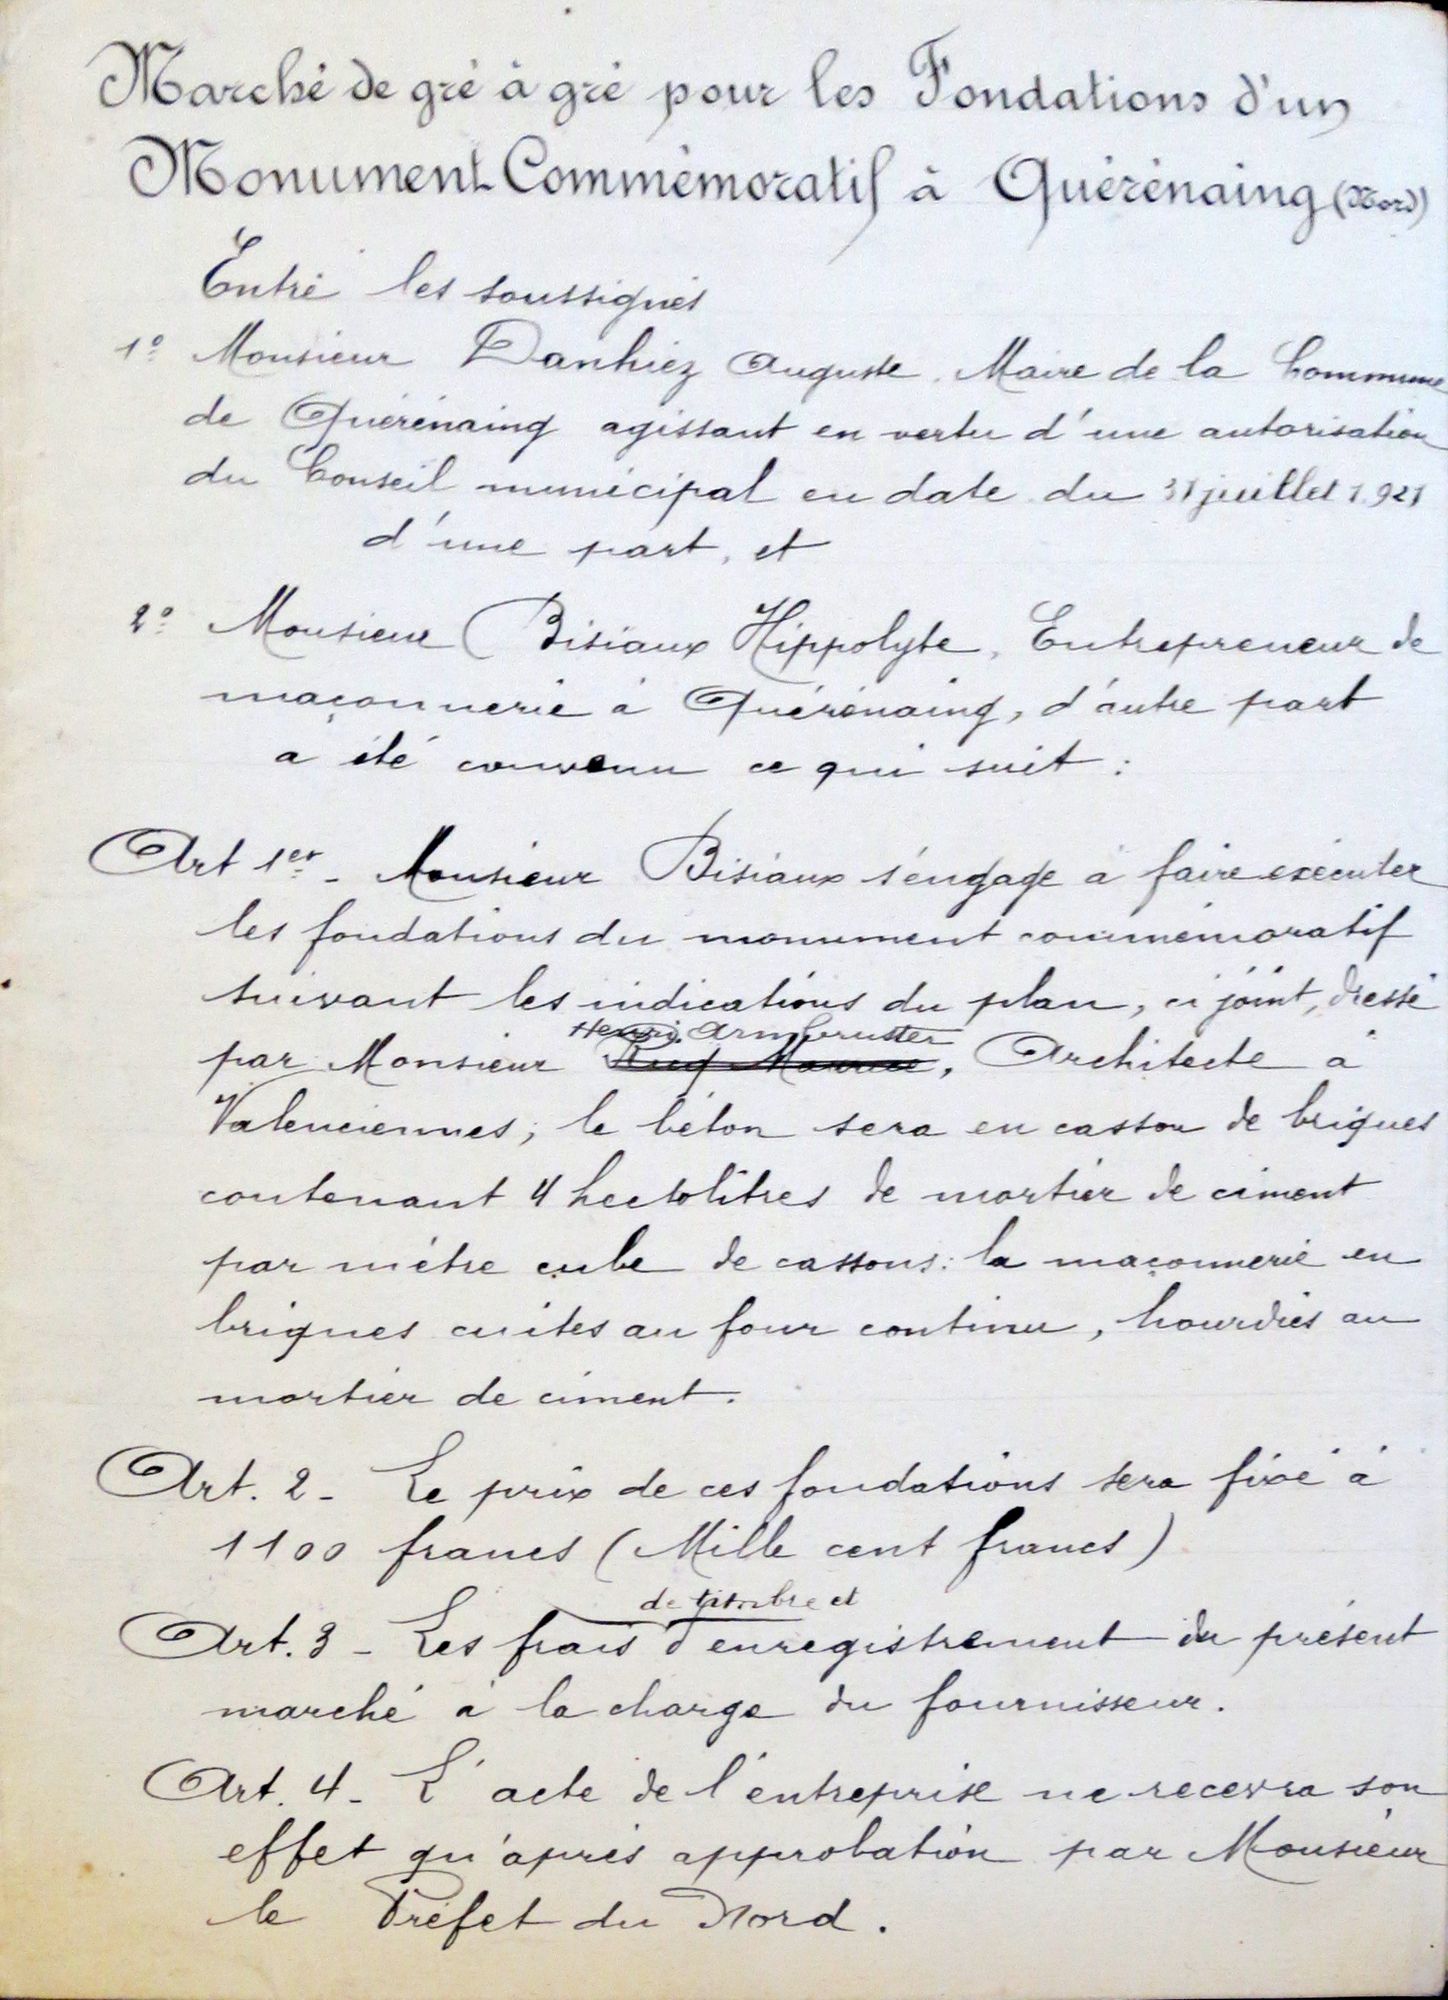 Marché de gré à gré pour les Fondations d'un
Monument Commémoratif à Quérénaing (Nord)
Entre les soussignés
1º Monsieur Danhiez Auguste, Maire de la Commune
de Quérénaing agissant en vertu d'une autorisation
du Conseil municipal en date du 31 juillet 1921
d'une part, et
2º Monsieur Bisiaux Hippolyte, Entrepreneur de
maçonnerie à Quérénaing, d'autre part
a été convenu ce qui suit :
Art 1er - Monsieur Bisiaux s'engage à faire exécuter
les fondations du monument commémoratif
suivant les indications du plan, ci joint, dressé
Henri Armbruster
par Monsieur , Architecte à
Valenciennes ; le béton sera en casson de briques
contenant 4 hectolitres de mortier de ciment
par mètre cube de cassons : la maçonnerie en
briques cuites au four continu, hourdies au
mortier de ciment.
Art. 2 - Le prix de ces fondations sera fixé à
1100 francs (Mille cent francs)
de timbre et
Art. 3 - Les frais d'enregistrement du présent
marché à la charge du fournisseur.
Art. 4 - L'acte de l'entreprise ne recevra son
effet qu'après approbation par Monsieur
le Préfet du Nord.